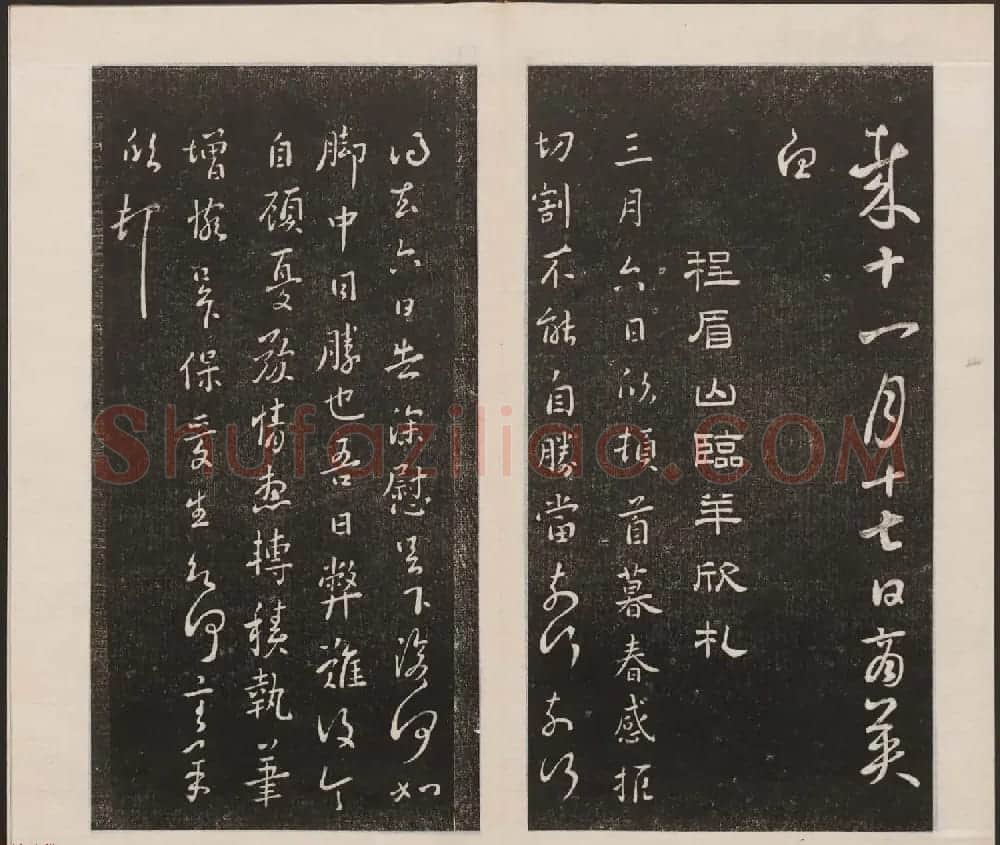 來十一月十七日商英
白
程眉山臨羊欣札
三月六日欣頓首暮春感摧
切割不能自勝當奈何奈何
得去六日告深慰足下復何如
脚中日勝也吾日弊難復令
自顧憂歎情想轉積執筆
增惋足下保愛書欲何言羊
欣頓
Shufaziliao.COM